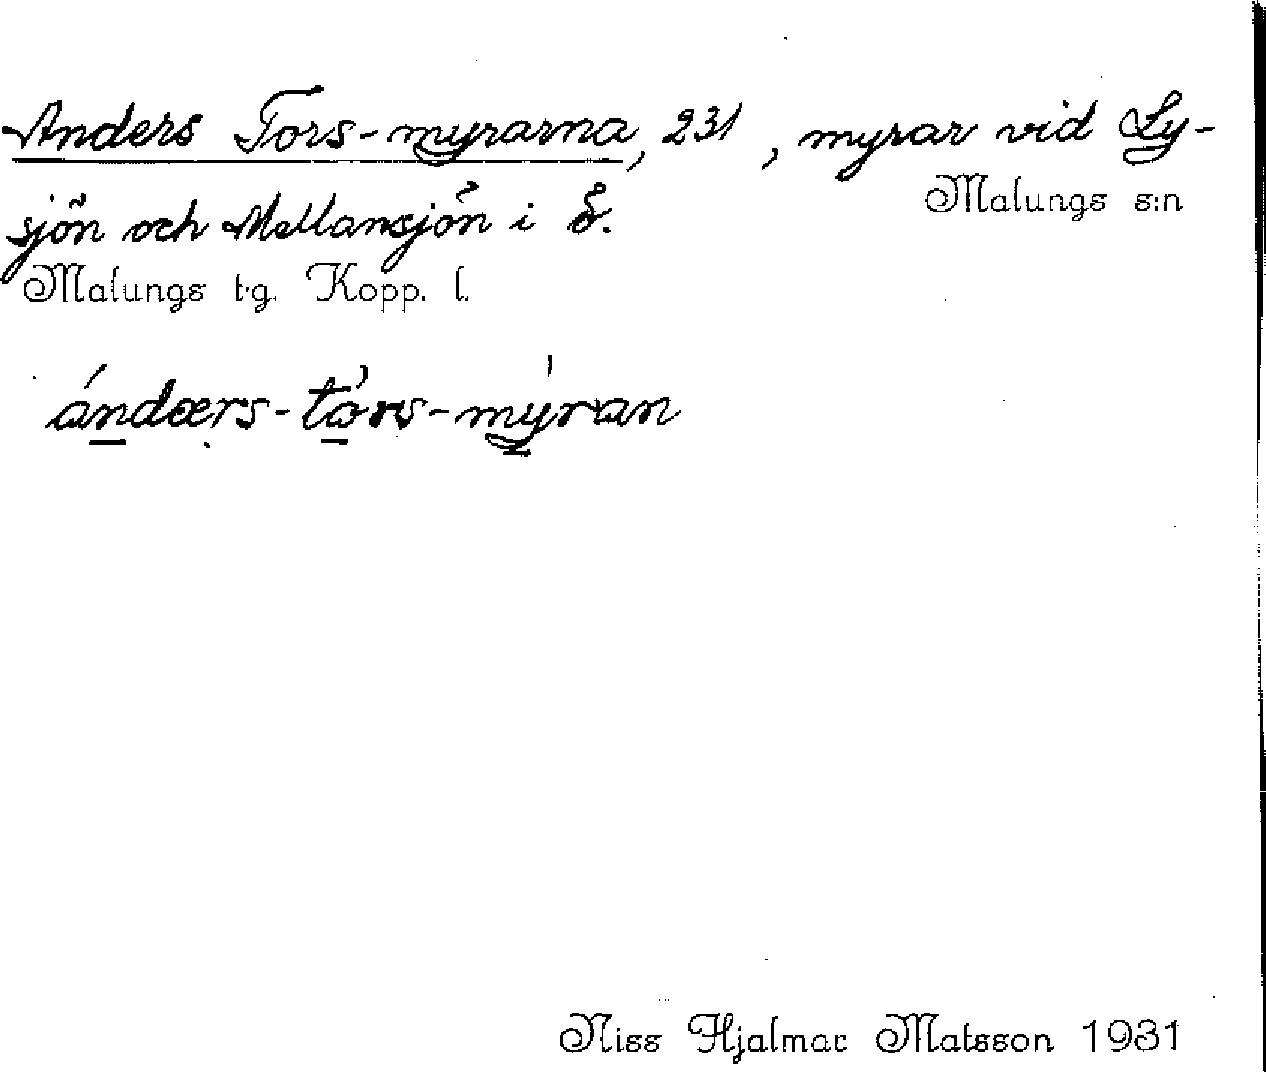 Anders Tors-myrarna, 231, myrar vid Ly-
Malungs s:n
sjön och Mellansjön i Ö.
Malungs t.g. Kopp. l.
ándærs-tårs-mýran
Niss Hjalmar Matsson 1931